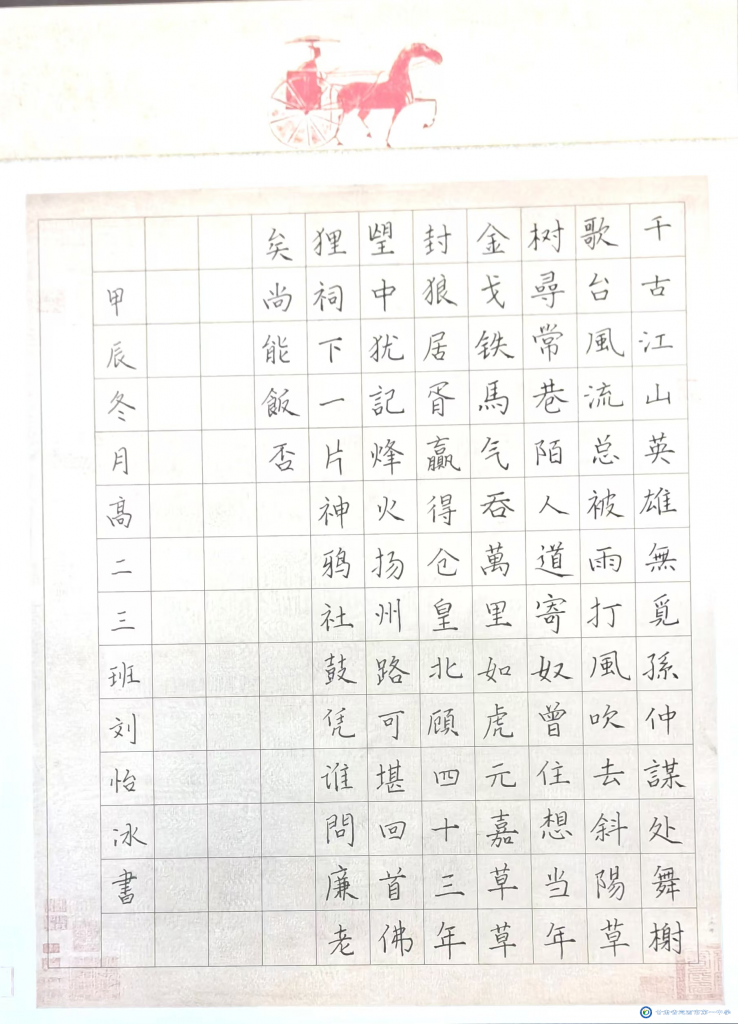 千古江山英雄無覓孫仲謀处舞榭
歌台風流总被雨打風吹去斜陽草
树尋常巷陌人道寄奴曾住想当年
金戈铁馬气吞萬里如虎元嘉草草
封狼居胥贏得仓皇北顾四十三年
朢中犹記烽火扬州路可堪回首佛
狸祠下一片神鸦社鼓凭谁問廉老
矣尚能飯否
甲辰冬月高二三班刘怡冰書